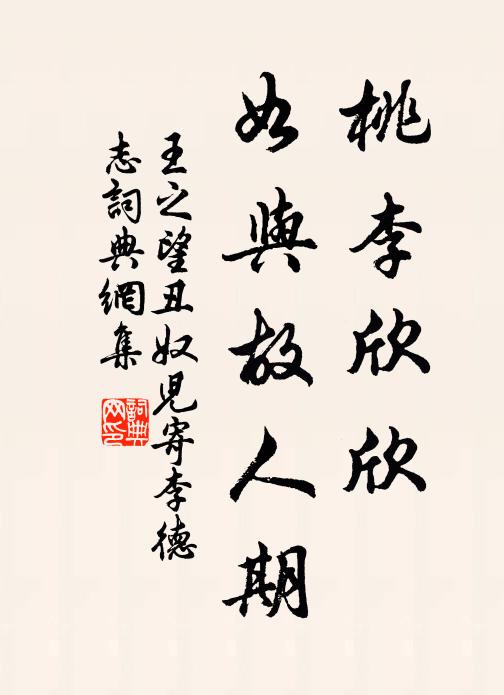 桃李欣欣
如與故人期
王之望丑奴兒寄李德
志詞典網集
詞典
网印